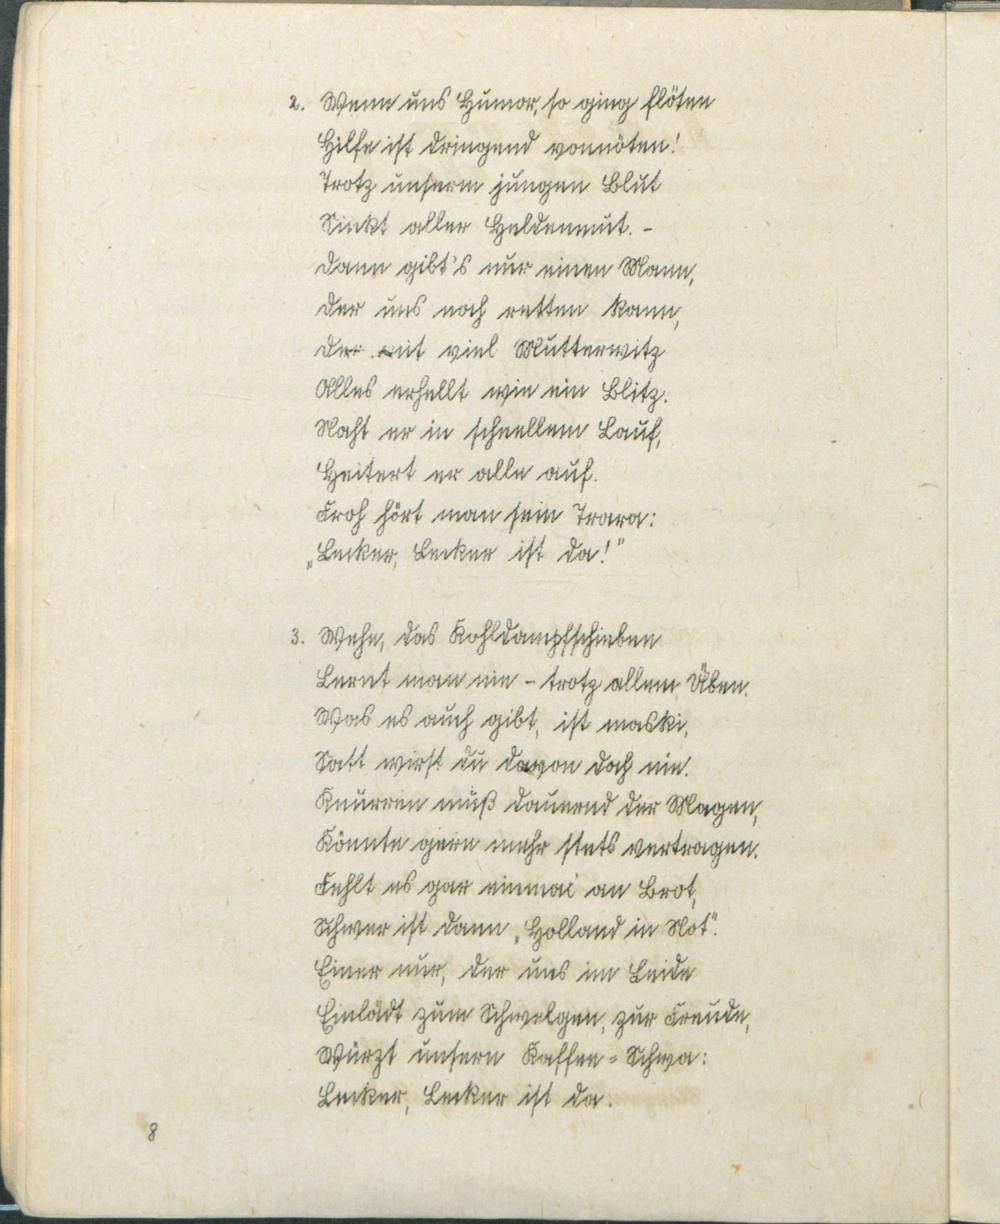 2. Wenn uns Humor, so ging flöten
Hilfe ist dringend vonnöten!
Trotz unserm jungen Blut
Sinkt aller Heldenmut. -
Dann gibt's nur einen Mann,
Der uns noch retten kann,
Der mit viel Mutterwitz
Alles erhellt wie ein Blitz.
Naht er in schnellem Lauf,
Heitert er alle auf.
Froh hört man sein Trara:
„Lecker, Lecker ist da!"
3. Wehe, das Kohldampfschieben
Lernt man nie - trotz allem Üben.
Was es auch gibt, ist maski,
Satt wirst du davon doch nie.
Knurren muß dauernd der Magen,
Könnte gern mehr stets vertragen.
Fehlt es gar einmal an Brot,
Schwer ist dann „Holland in Not".
Einer nur, der uns im Leide
Einlädt zum Schwelgen, zur Freude,
Würzt unsern Kaffee=Schwa:
Lecker, Lecker ist da.
8